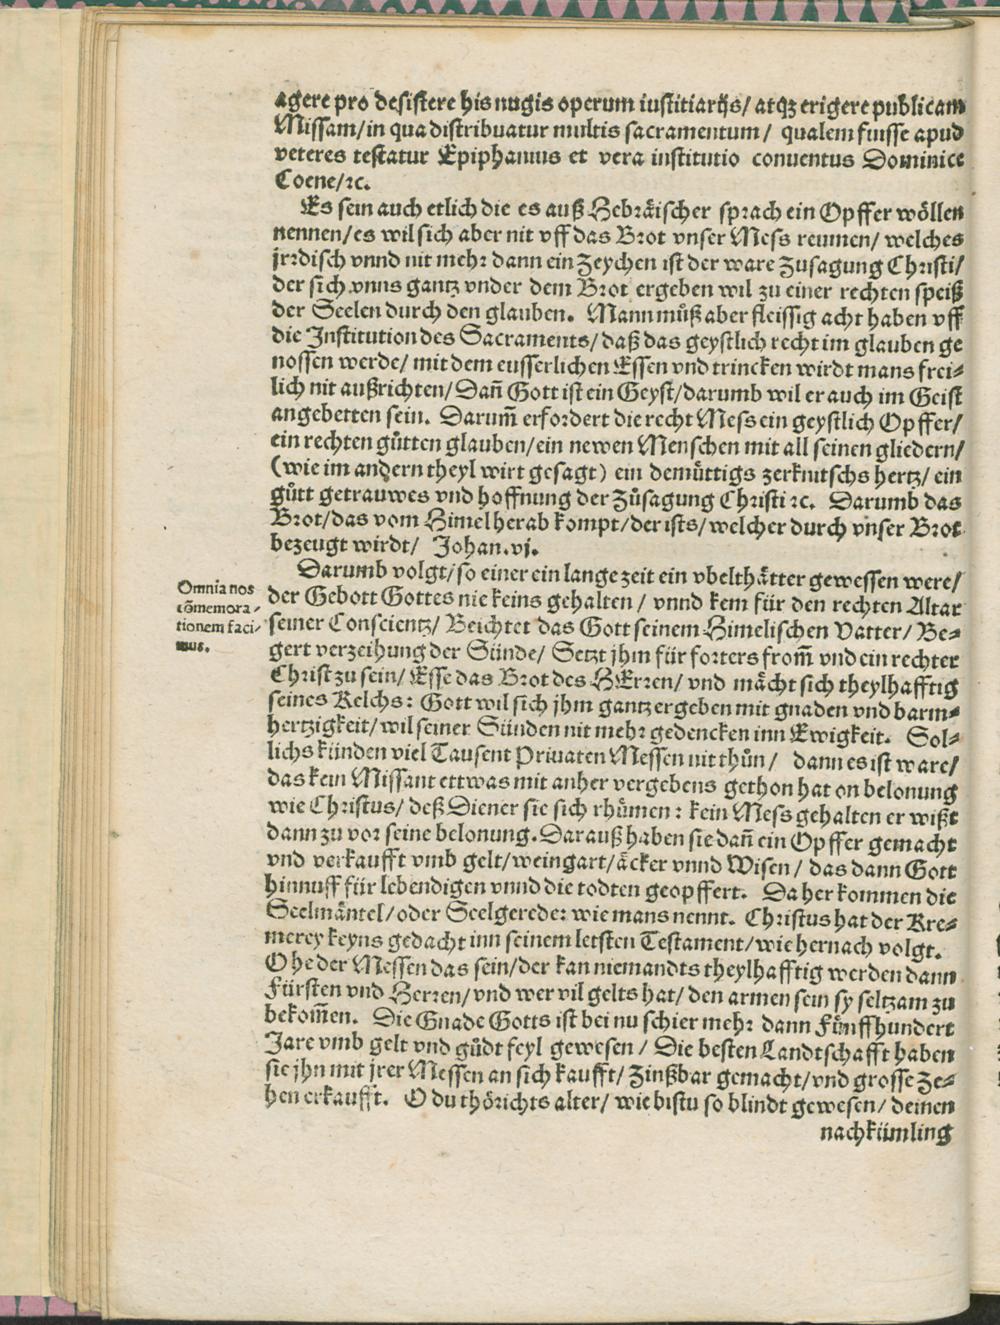 agere pro desistere his nugis operum iustitiarijs/ atqꝫ erigere publicam
Missam/in qua distribuatur multis sacramentum/ qualem fuisse apud
veteres testatur Epiphanius et vera institutio conuentus Dominice
Coene/ꝛc.
Es sein auch etlich die es auß Hebräischer sprach ein Opffer wöllen
nennen/es wil sich aber nit vff das Brot vnser Mess reumen/ welches
jrrdisch vnnd nit mehr dann ein Zeychen ist der ware Zusagung Christi/
der sich vnns gantz vnder dem Brot ergeben wil zu einer rechten speiß
der Seelen durch den glauben. Mann můß aber fleissig acht haben vff
die Institution des Sacraments/ daß das geystlich recht im glauben ge
nossen werde/ mit dem eusserlichen Essen vnd trincken wirdt mans frei⸗
lich nit außrichten/ Dañ Gott ist ein Geyst/darumb wil er auch im Geist
angebetten sein. Darum̃ erfordert die recht Mess ein geystlich Opffer/
ein rechten gůtten glauben/ein newen Menschen mit all seinen gliedern/
(wie im andern theyl wirt gesagt) ein demüttigs zerknitschs hertz/ ein
gůtt getrauwes vnd hoffnung der Zůsagung Christi ꝛc. Darumb das
Brot/das vom Himel herab kompt/der ists/welcher durch vnser Brot
bezeugt wirdt/ Johan.vj.
Darumb volgt/so einer ein lange zeit ein vbelthätter gewessen were/
der Gebott Gottes nie keins gehalten/ vnnd kem für den rechten Altar
seiner Conscientz/ Beichtet das Gott seinem Himelischen Vatter/ Be⸗
gert verzeihung der Sünde/ Setzt jhm für forters from̃ vnd ein rechter
Christ zu sein/ Esse das Brot des HErren/ vnd mächt sich theylhafftig
seines Kelchs: Gott wil sich jhm gantz ergeben mit gnaden vnd barm⸗
hertzigkeit/ wil seiner Sünden nit mehr gedencken inn Ewigkeit. Sol⸗
lichs künden viel Tausent Priuaten Messen nit thůn/ dann es ist ware/
das kein Missant ettwas mit anher vergebens gethon hat on belonung
wie Christus/ deß Diener sie sich rhümen: kein Mess gehalten er wißt
dann zu vor seine belonung. Darauß haben sie dañ ein Opffer gemacht
vnd verkaufft vmb gelt/weingart/äcker vnnd Wisen/ das dann Gott
hinnuff für lebendigen vnnd die todten geopffert. Da her kommen die
Seelmäntel/oder Seelgereder wie mans nennt. Christus hat der Kre⸗
merey keyns gedacht inn seinem letsten Testament/wie hernach volgt.
O he der Messen das sein/der kan niemandts theylhafftig werden dann
Fürsten vnd Herren/vnd wer vil gelts hat/ den armen sein sy seltzam zu
bekom̃en. Die Gnade Gotts ist bei nu schier mehr dann Fünffhundert
Jare vmb gelt vnd gůdt feyl gewesen/ Die besten Landtschafft haben
sie jhn mit jrer Messen an sich kaufft/ Zinßbar gemacht/vnd grosse Ze⸗
hen erkaufft. O du thörichts alter/ wie bistu so blindt gewesen/ deinen
nachkümling
Omnia nos
cōmemora⸗
tionem faci⸗
mus.